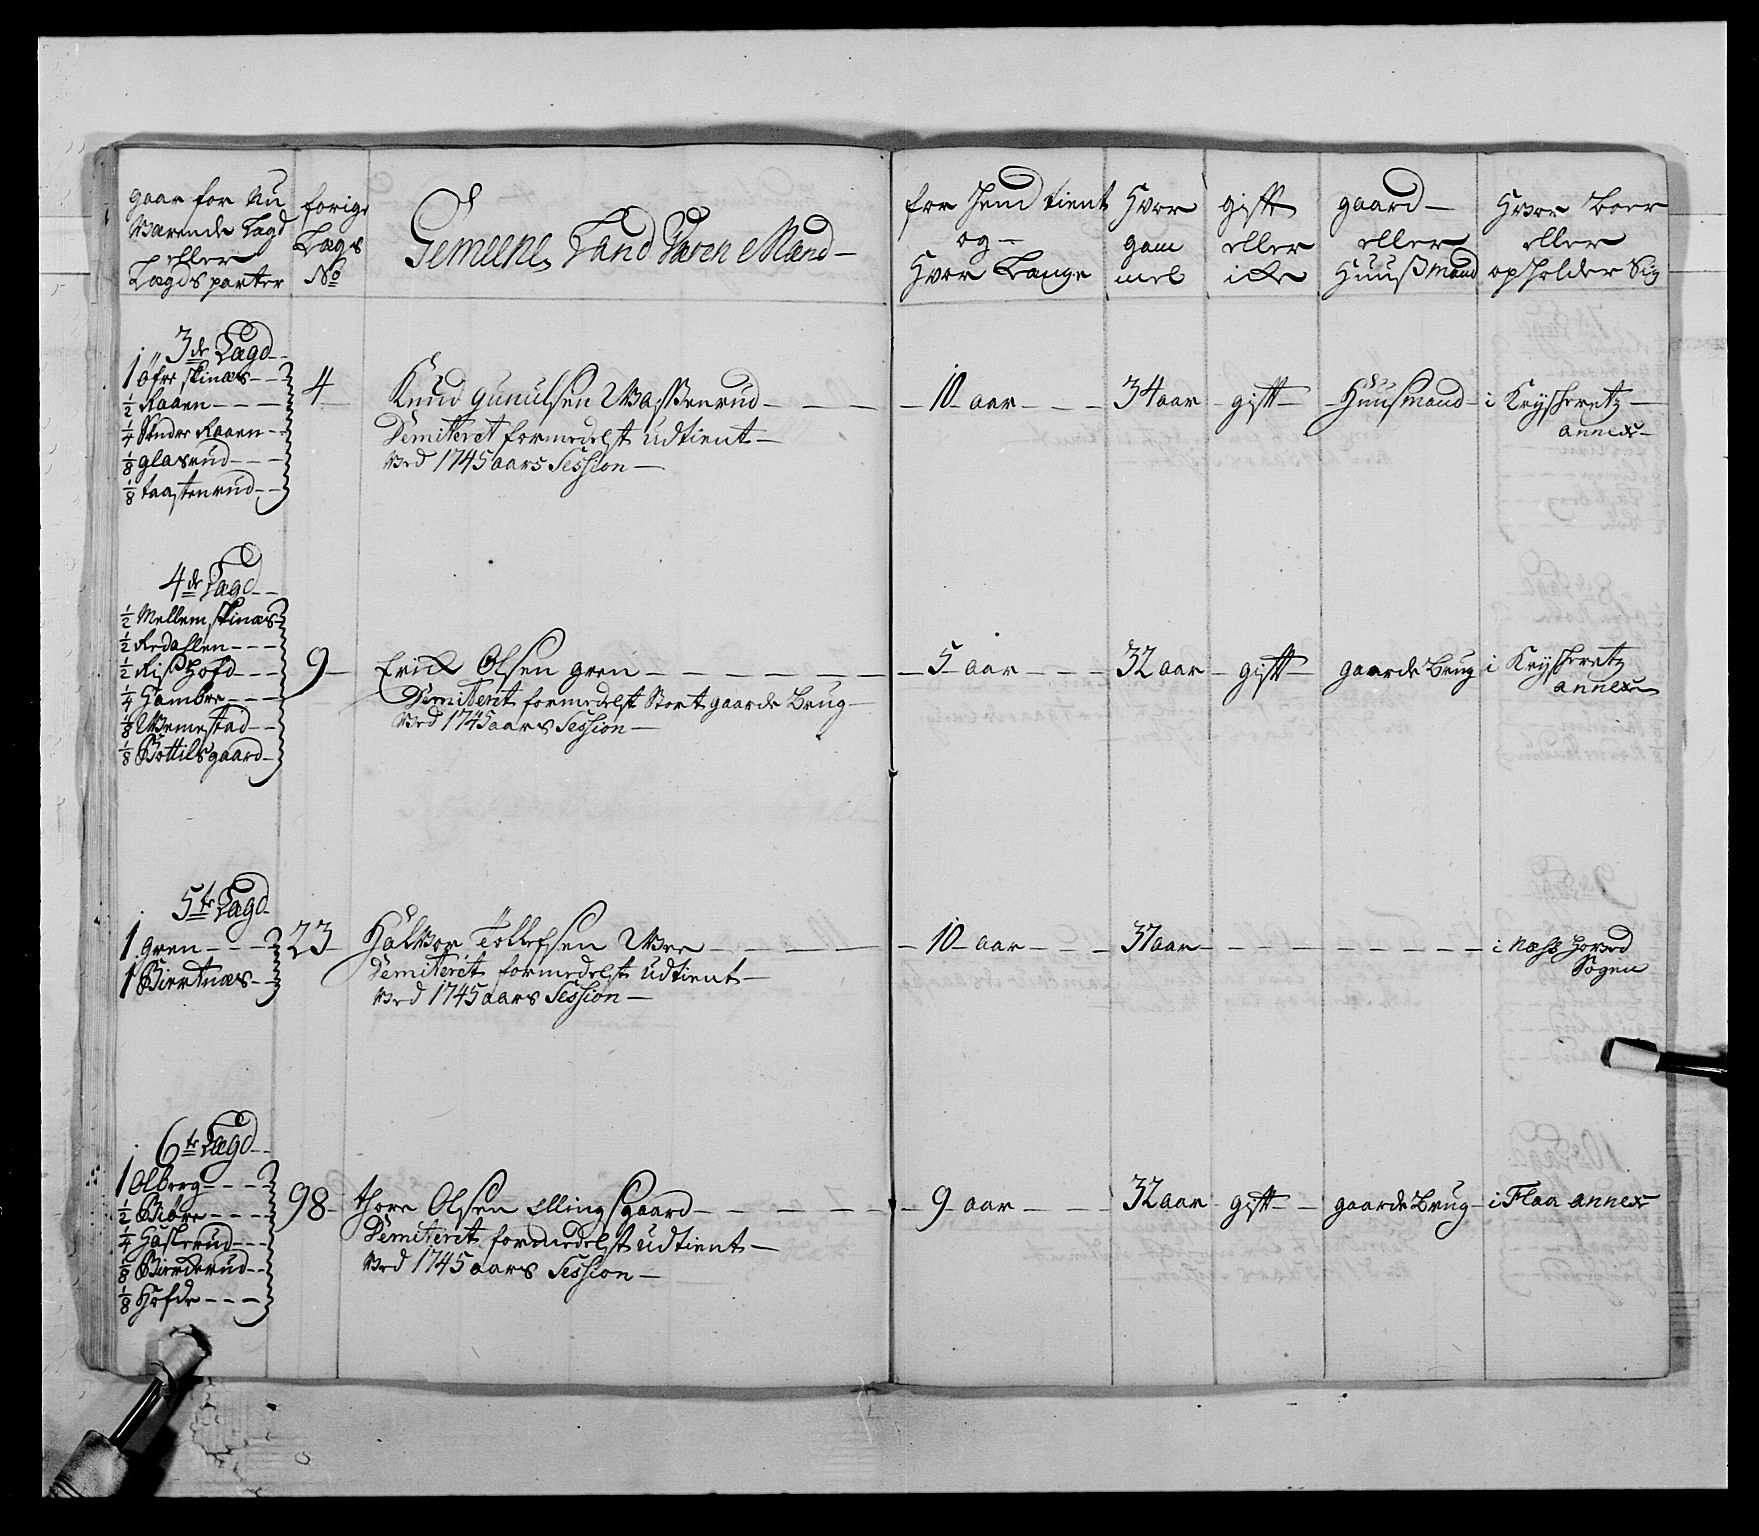 gaar for Nu
Værende Lægd
eller
Lægds parter
forige
Lægs
No
Gemeene Land Værn Mænd
for hend tient
og
Hvor Lange
Hvor
gam
mel
gift
eller
icke
gaard
eller
Huuß Mand
Hvor Boer
eller
opholder Sig
3de Lægd
1 Øfre skinæs
1/2 Raaen
1/4 Søndre Raaen
1/8 glasrud
1/8 taastenrud
4
Knud gunulsen Waßenrud
Demiteret formedelst udtient
Ved 1745 aars Session
10 aar
34 aar
gift
Huusmand
i Krydsheretz
annex
4de Lægd
1/2 Mellem skinæs
1/2 Redahlen
1/2 Riis Hofd
1/4 Gambre
1/8 Wemestad
1/8 Bottilsgaard
9
Erick Olsen gren
Demiteret formedelst Stort gaarde Brug
Ved 1745 aars Session
5 aar
32 aar
gift
gaarde Brug
i Krydsheretz
annex
5te Lægd
1 gren
1 Biertnæs
23
Halvor Tollefsen Wee
Demiteret formedelst udtient
Ved 1745 aars Session
10 aar
37 aar
i Næss Hoved
Sogen
6te Lægd
1 Olberg
1/2 Biøre
1/4 Haslerud
1/8 Bierderud
1/8 Hofde
98
thore Olsen Ellingsgaard
Demiteret formedelst udtient
Ved 1745 aars Session
9 aar
32 aar
gift
gaarde Brug
i Flaa annex